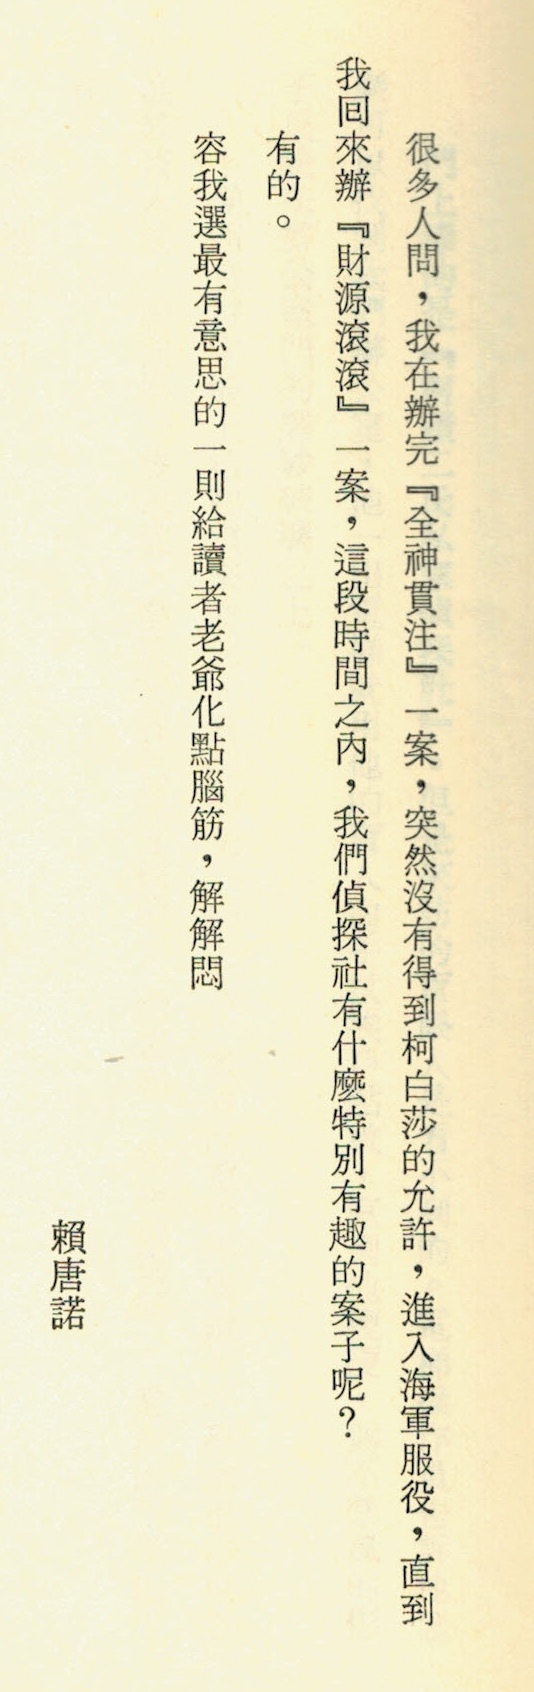 很多人問，我在辦完『全神貫注』一案，突然沒有得到柯白莎的允許，進入海軍服役，直到
我回來辦『財源滾滾』一案，這段時間之內，我們偵探社有什麼特別有趣的案子呢？
有的。
容我選最有意思的一則給讀者老爺化點腦筋，解解悶
賴唐諾